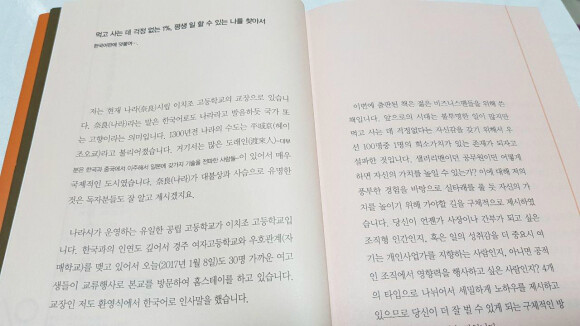 먹고 사는 데 걱정 없는 1%, 평생 일 할 수 있는 나를 찾아서
한국어판에 덧붙여…
저는 현재 나라(奈良)시립 이치조 고등학교의 교장으로 있습니
다. 奈良(나라)라는 말은 한국어로도 나라라고 발음하듯 국가 또
는 고향이라는 의미입니다. 1300년전 나라의 수도는 平城京(헤이
조오쿄)라고 불리어졌습니다. 거기에서는 많은 도래인(渡來人)-대부
분은 한국과 중국에서 이주해서 일본에 갖가지 기술을 전파한 사람들-이 있어서 매우
국제적인 도시였습니다. 奈良(나라)가 대불상과 사슴으로 유명한
것은 독자분들도 잘 알고 계시겠지요.
나라시가 운영하는 유일한 공립 고등학교가 이치조 고등학교입
니다. 한국과의 인연도 깊어서 경주 여자고등학교와 우호관계(자
매학교)를 맺고 있어서 오늘(2017년 1월 8일)도 30명 가까운 여고
생들이 교류행사로 본교를 방문하여 홈스테이를 하고 있습니다.
교장인 저도 환영식에서 한국어로 인사말을 했습니다.
이번에 출판된 책은 젊은 비즈니스맨들을 위해 쓴
책입니다. 앞으로의 시대는 불투명한 일이 많지만
먹고 사는 데 걱정없다는 자신감을 갖기 위해서 우
선 100명중 1명의 희소가치가 있는 존재가 되자고
설파한 것입니다. 샐러리맨이던 공무원이던 어떻게
하면 자신의 가치를 높일 수 있는가? 이에 대해 저의
풍부한 경험을 바탕으로 실타래를 풀 듯 자신의 가
치를 높이기 위해 가야할 길을 구체적으로 제시하였
습니다. 당신이 언젠가 사장이나 간부가 되고 싶은
조직형 인간인지, 혹은 일의 성취감을 더 중요시 여
기는 개인사업가를 지향하는 사람인지, 아니면 공적
인 조직에서 영향력을 행사하고 싶은 사람인지? 4개
의 타입으로 나뉘어서 세밀하게 노하우를 제시하고
있으므로 당신이 더 잘 벌 수 있게 되는 구체적인 방